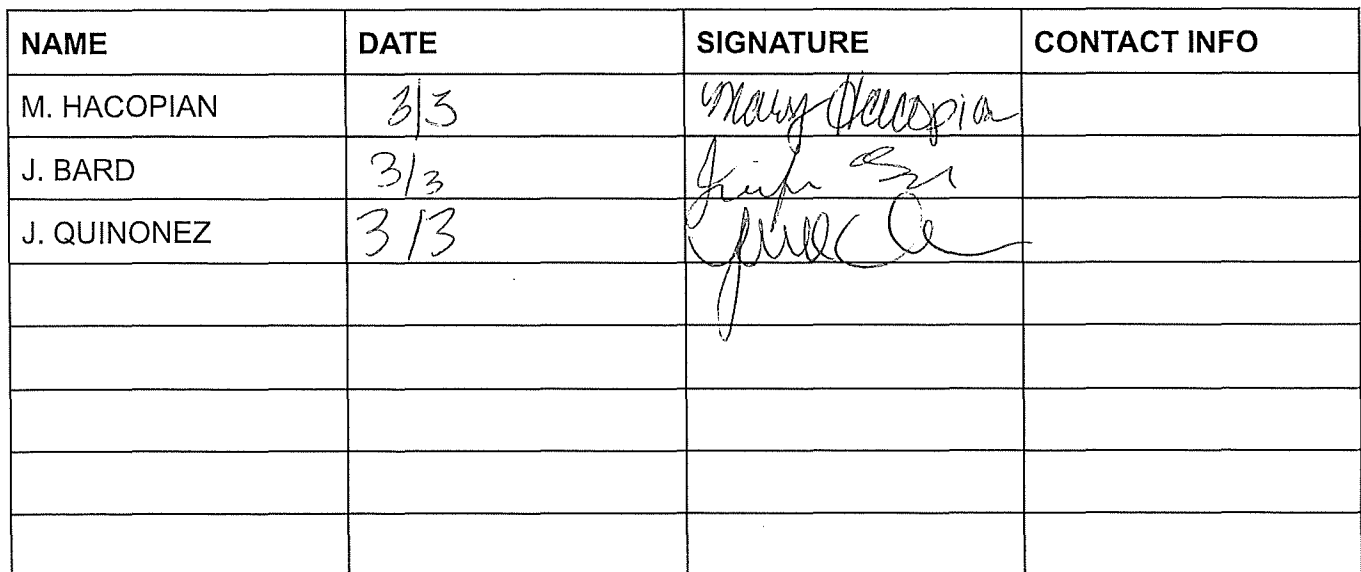 NAME DATE SIGNATURE CONTACT INFO
M. HACOPIAN 3/3 Mary Hacopian
J. BARD 3/3
J. QUINONEZ 3/3